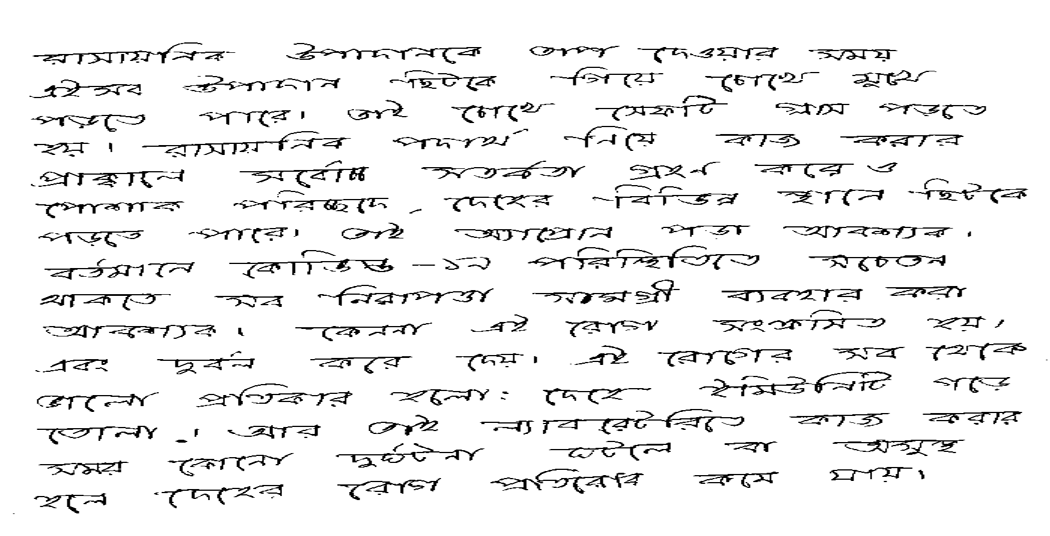 রাসায়নিক উপাদানকে তাপ দেওয়ার সময়
এইসব উপাদান ছিটকে গিয়ে চোখে মুখে
পড়তে পারে। তাই চোখে সেফটি গ্লাস পড়তে
হয়। রাসায়নিক পদার্থ নিয়ে কাজ করার
প্রাক্কালে সর্বোচ্চ সতর্কতা গ্রহণ করে ও
পোশাক পরিচ্ছদে, দেহের বিভিন্ন স্থানে ছিটকে
পড়তে পারে। তাই অ্যাপ্রোন পড়া আবশ্যক।
বর্তমানে কোভিড -১৯ পরিস্থিতিতে সচেতন
থাকতে সব নিরাপত্তা সামগ্রী ব্যবহার করা
আবশ্যক। কেননা এই রোগ সংক্রমিত হয়,
এবং দুর্বল করে দেয়। এই রোগের সব থেকে
ভালো প্রতিকার হলো: দেহে ইমিউনিটি গড়ে
তোলা। আর তাই ল্যাবরেটরিতে কাজ করার
সময় কোনো দুর্ঘটনা ঘটলে বা অসুস্থ
হলে দেহের রোগ প্রতিরোধ কমে যায়।